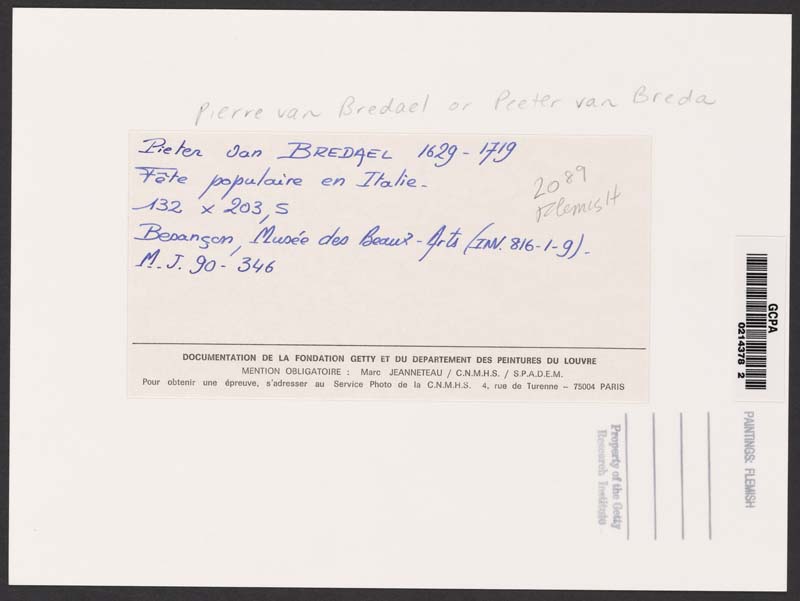 Pierre van Bredael or Peeter van Breda
Pieter van BREDAEL 1629-1719
Fête populaire en Italie-
132 x 203,5
Besançon, Musée des Beaux-Arts (INV. 816-1-9).
M.J. 90-346
2089
Flemish
DOCUMENTATION DE LA FONDATION GETTY ET DU DEPARTEMENT DES PEINTURES DU LOUVRE
MENTION OBLIGATOIRE : Marc JEANNETEAU / C.N.M.H.S. / S.P.A.D.E.M.
Pour obtenir une épreuve, s'adresser au Service Photo de la C.N.M.H.S. 4, rue de Turenne – 75004 PARIS
GCPA
0214378 2
Property of the Getty
Research Institute
PAINTINGS: FLEMISH